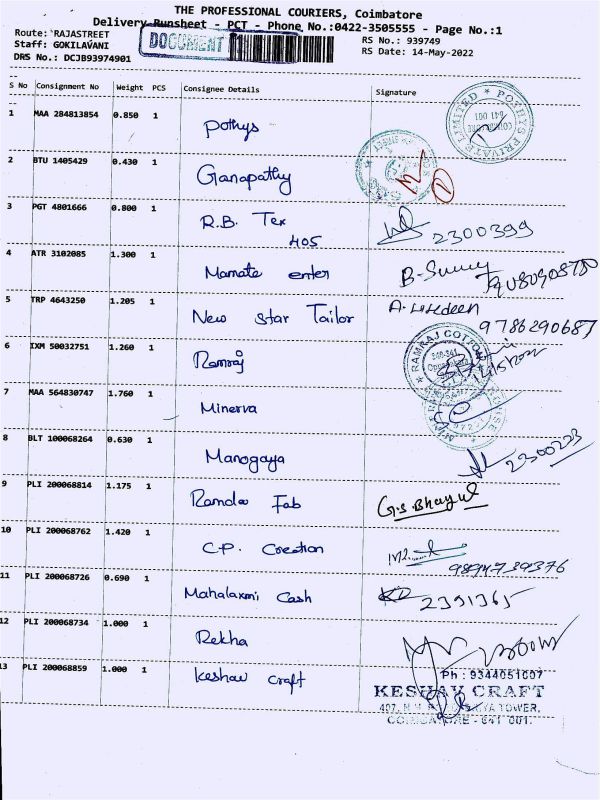 THE PROFESSIONAL COURIERS, Coimbatore
Delivery Runsheet - PCT - Phone No.:0422-3505555 - Page No.:1
Route: RAJASTREET RS No.: 939749
Staff: GOKILAVANI DOCUMENT RS Date: 14-May-2022
DRS No.: DCJB93974901
S No Consignment No Weight PCS Consignee Details Signature
1 MAA 284813854 0.850 1 Pothys POTHYS PRIVATE LIMITED 641 001
2 BTU 1405429 0.430 1 Ganapathy
3 PGT 4801666 0.800 1 R.B. Tex 405 2300399
4 ATR 3102085 1.300 1 Mamate enter B-Sunny
5 TRP 4643250 1.205 1 New star Tailor 9786290687
6 IXM 50032751 1.260 1 Ramraj RAMRAJ COTTON
7 MAA 564830747 1.760 1 Minerva
8 BLT 100068264 0.630 1 Manogaya 2300223
9 PLI 200068814 1.175 1 Ramdev Fab G.S. Bhayul
10 PLI 200068762 1.420 1 C.P. Creation 9894739376
11 PLI 200068726 0.690 1 Mahalaxmi Cash 2391365
12 PLI 200068734 1.000 1 Rekha
13 PLI 200068859 1.000 1 Keshav craft Ph : 9344051607
KESHAV CRAFT
407, TOWER,
COIMBATORE - 641 001.